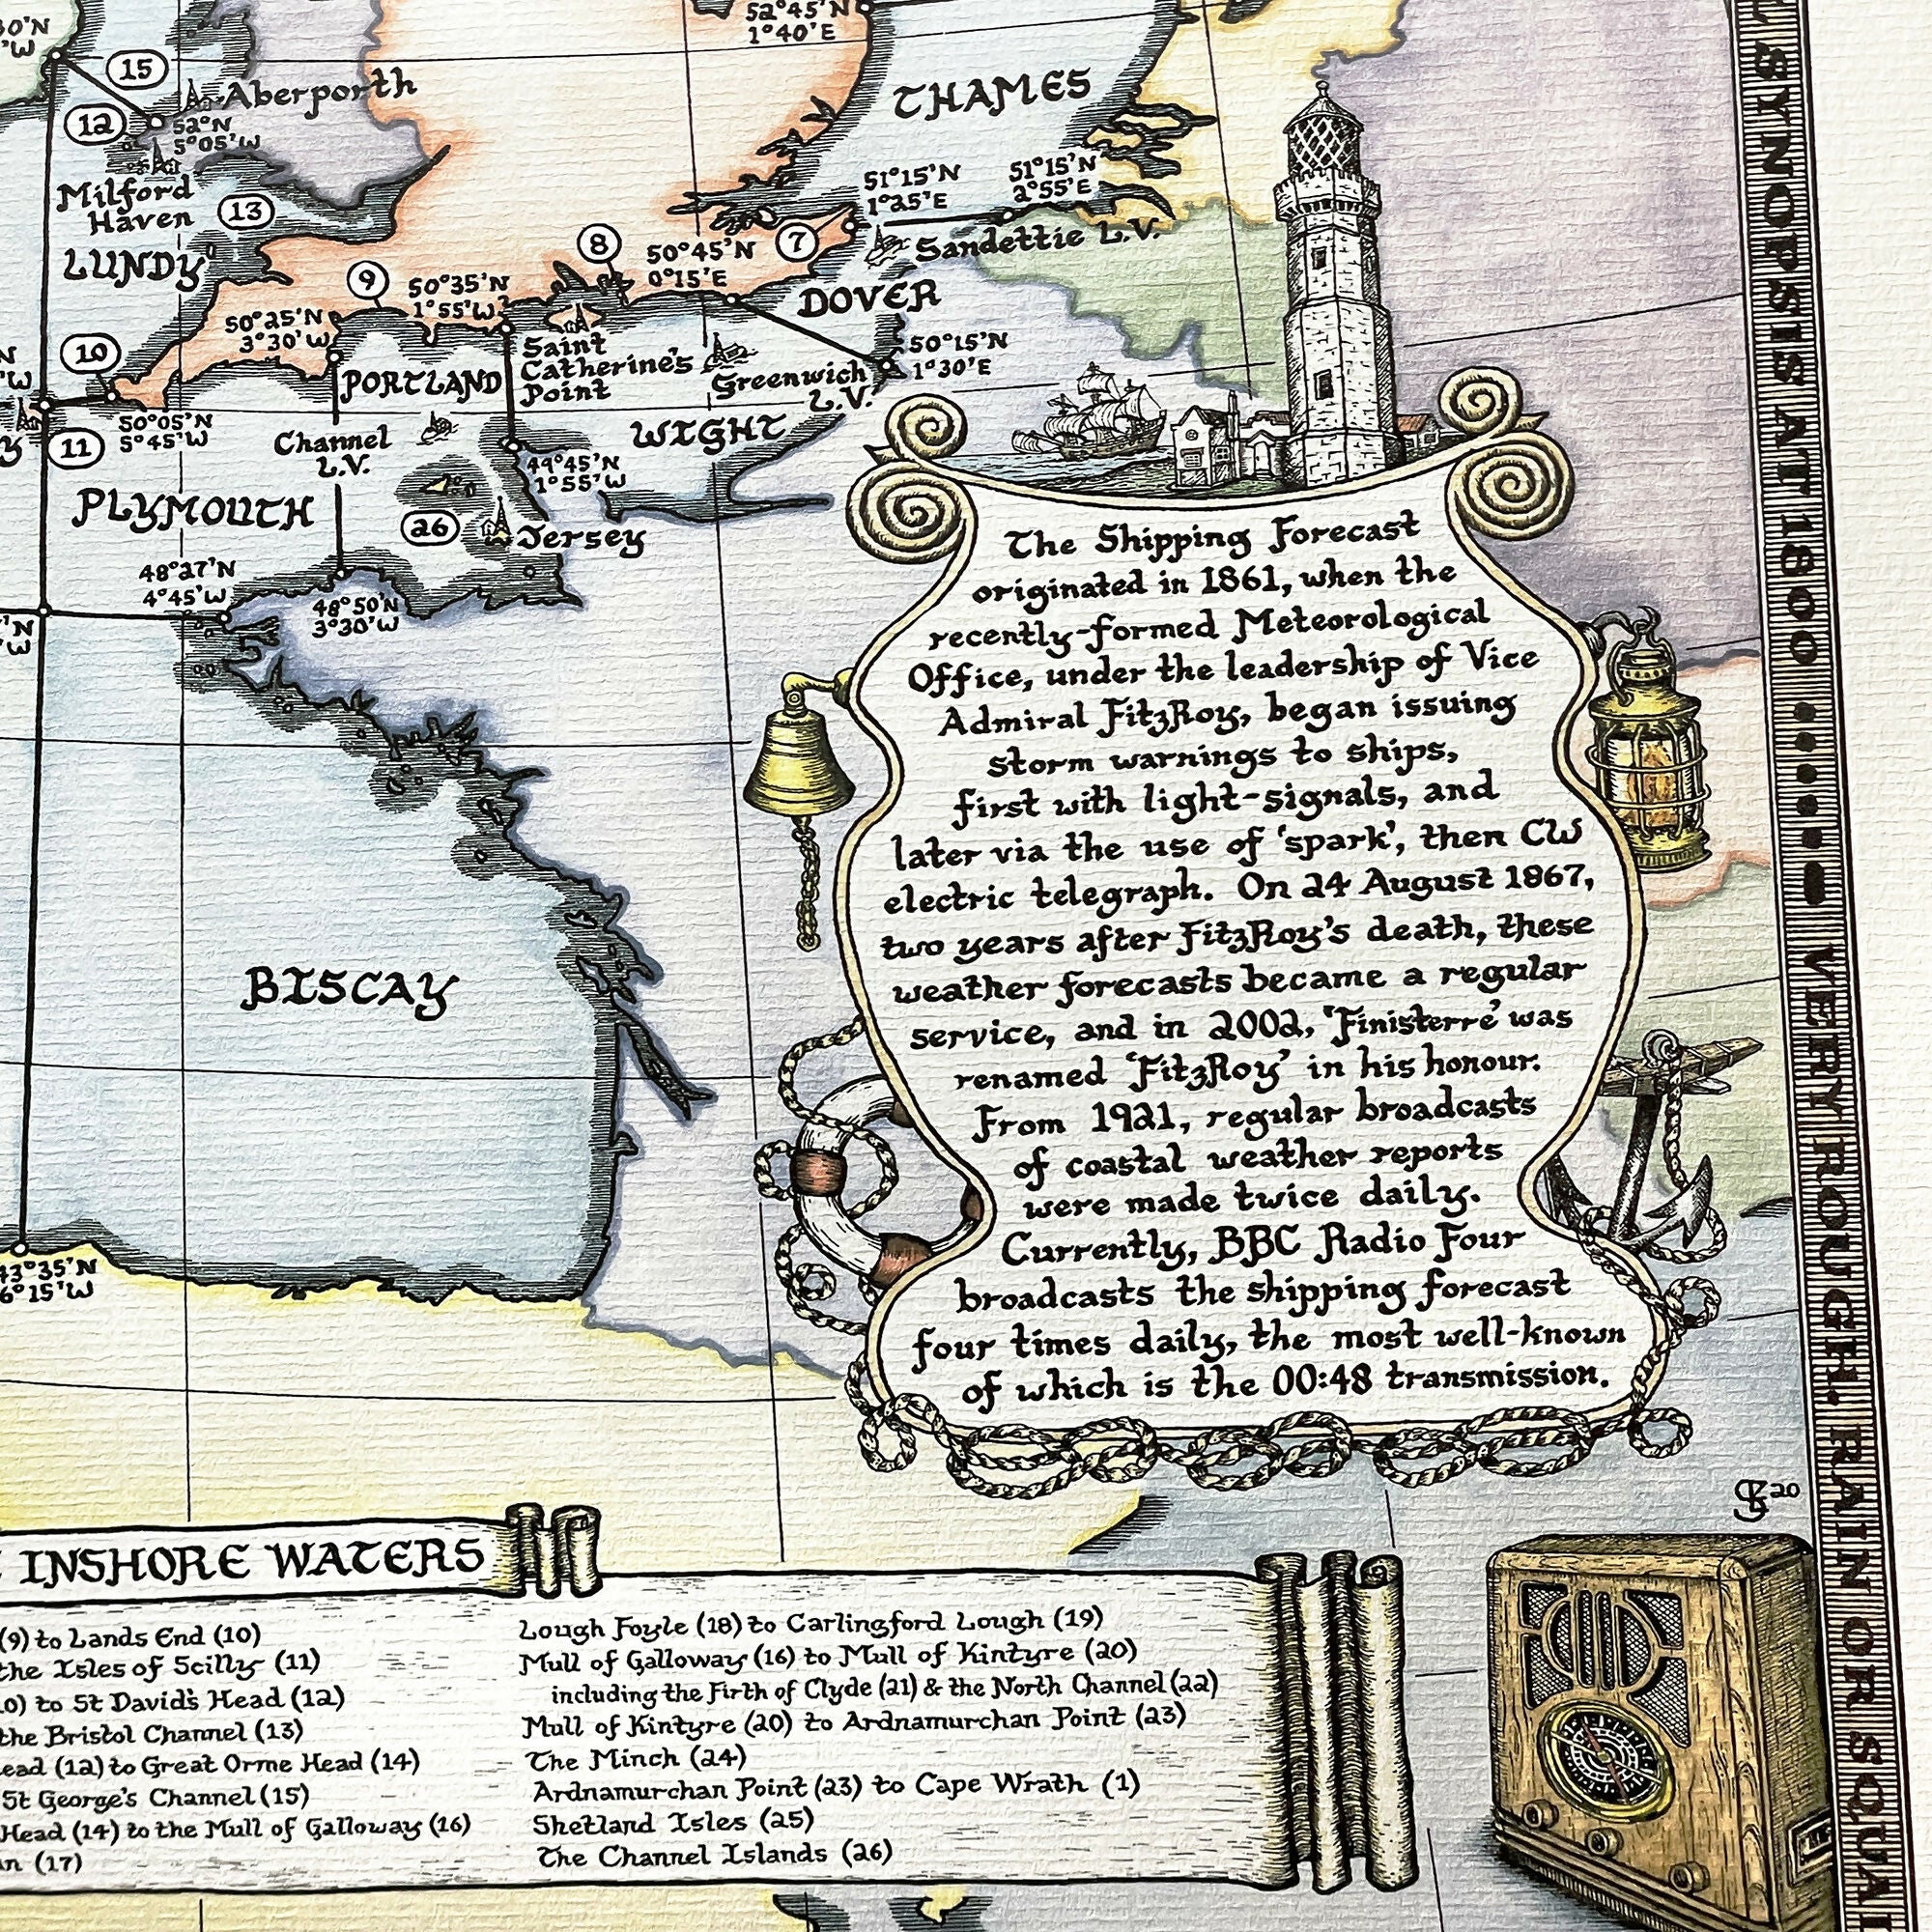 52°45'N
1°40'E
15
Aberporth
THAMES
12
52°N
5°05'W
Milford
Haven
13
LUNDY
51°15'N
1°25'E
51°15'N
2°55'E
Sandettie L.V.
8
50°45'N
0°15'E
7
DOVER
9
50°35'N
1°55'W
50°25'N
3°30'W
10
PORTLAND
Saint
Catherine's
Point
Greenwich
L.V.
50°15'N
1°30'E
50°05'N
5°45'W
11
Channel
L.V.
WIGHT
49°45'N
1°55'W
PLYMOUTH
26
Jersey
48°27'N
4°45'W
48°50'N
3°30'W
BISCAY
43°35'N
6°15'W
The Shipping Forecast
originated in 1861, when the
recently-formed Meteorological
Office, under the leadership of Vice
Admiral FitzRoy, began issuing
storm warnings to ships,
first with light-signals, and
later via the use of 'spark', then CW
electric telegraph. On 24 August 1867,
two years after FitzRoy's death, these
weather forecasts became a regular
service, and in 2002, 'Finisterre' was
renamed 'FitzRoy' in his honour.
From 1921, regular broadcasts
of coastal weather reports
were made twice daily.
Currently, BBC Radio Four
broadcasts the shipping forecast
four times daily, the most well-known
of which is the 00:48 transmission.
20
INSHORE WATERS
(9) to Lands End (10)
the Isles of Scilly (11)
to St David's Head (12)
the Bristol Channel (13)
(12) to Great Orme Head (14)
St George's Channel (15)
Head (14) to the Mull of Galloway (16)
(17)
Lough Foyle (18) to Carlingford Lough (19)
Mull of Galloway (16) to Mull of Kintyre (20)
including the Firth of Clyde (21) & the North Channel (22)
Mull of Kintyre (20) to Ardnamurchan Point (23)
The Minch (24)
Ardnamurchan Point (23) to Cape Wrath (1)
Shetland Isles (25)
The Channel Islands (26)
SYNOPSIS AT 1800 ...... VERY ROUGH. RAIN OR SQUAL